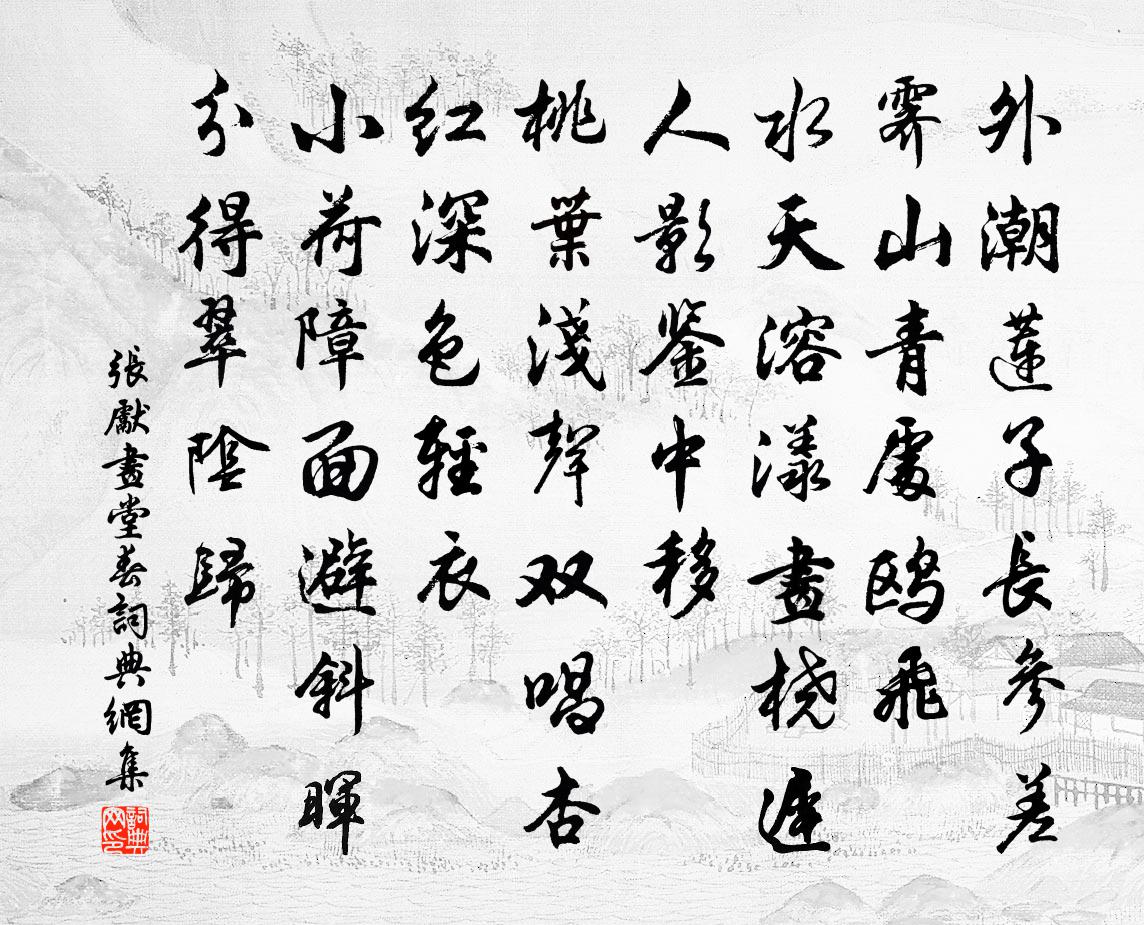 外潮蓮子長參差
霽山青處鷗飛
水天溶漾畫橈遲
人影鉴中移
桃葉淺聲双唱杏
红深色輕衣
小荷障面避斜暉
分得翠陰歸
張獻畫堂春詞典網集
詞典网印